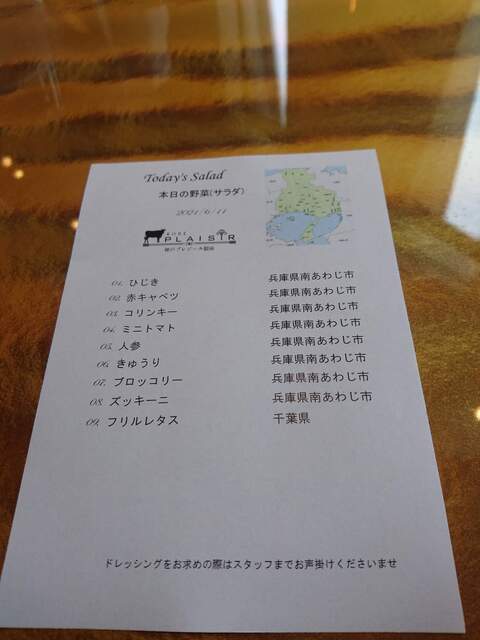 Today's Salad
本日の野菜(サラダ)
2021/6/11
KOBE
PLAISIR
神戸プレジール銀座
01. ひじき 兵庫県南あわじ市
02. 赤キャベツ 兵庫県南あわじ市
03. コリンキー 兵庫県南あわじ市
04. ミニトマト 兵庫県南あわじ市
05. 人参 兵庫県南あわじ市
06. きゅうり 兵庫県南あわじ市
07. ブロッコリー 兵庫県南あわじ市
08. ズッキーニ 兵庫県南あわじ市
09. フリルレタス 千葉県
ドレッシングをお求めの際はスタッフまでお声掛けくださいませ